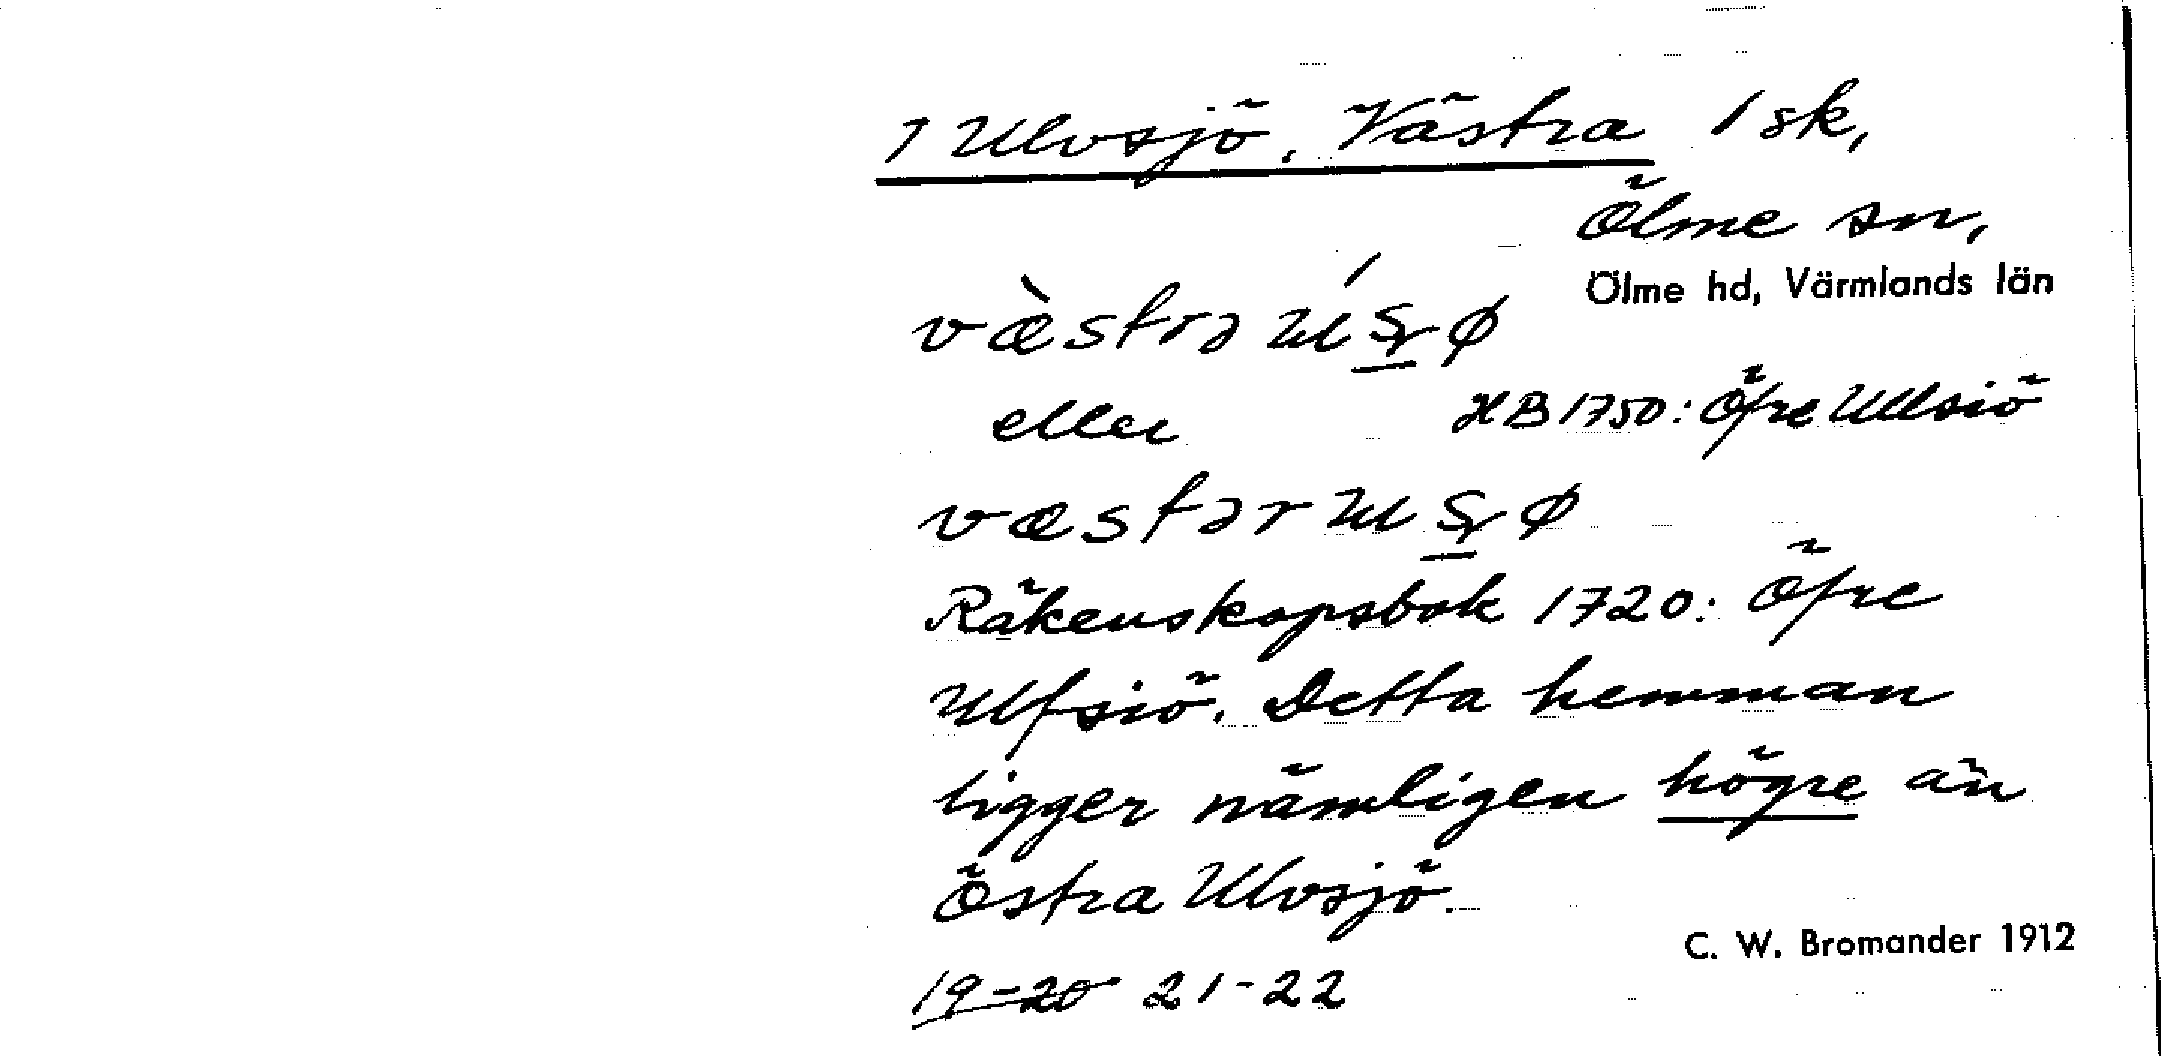 1 Ulvsjö, Västra 1 sk,
Ölme sn,
Ölme hd, Värmlands län
væ̀strə
eller
HB 1750: Öfre Ullsiö
væstər
Räkenskapsbok 1720: Öfre
Ulfsiö. Detta hemman
ligger nämligen högre än
Östra Ulvsjö.
C. W. Bromander 1912
19-20 21-22